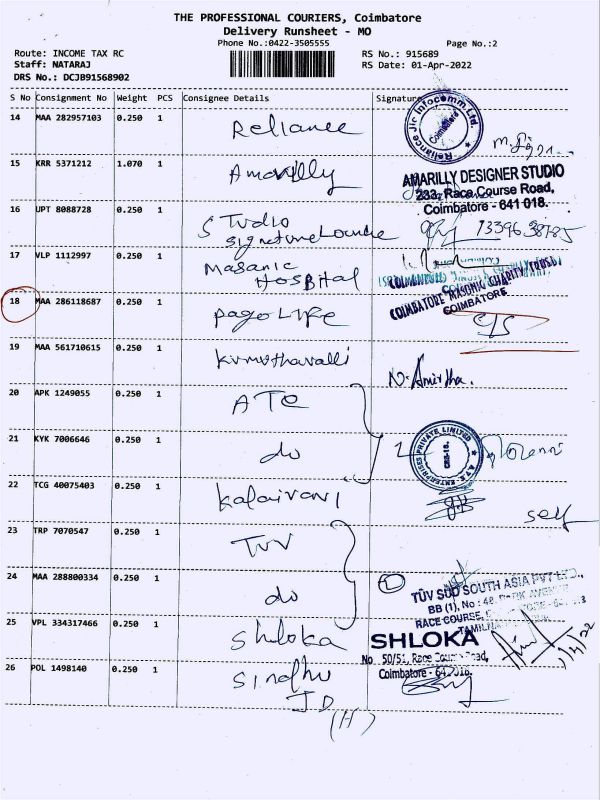 THE PROFESSIONAL COURIERS, Coimbatore
Delivery Runsheet - MO
Phone No.:0422-3505555
Page No.:2
Route: INCOME TAX RC
RS No.: 915689
Staff: NATARAJ
RS Date: 01-Apr-2022
DRS No.: DCJB91568902
S No Consignment No Weight PCS Consignee Details Signature
14 MAA 282957103 0.250 1 Reliance
Reliance Jio Infocomm Ltd.
Coimbatore
15 KRR 5371212 1.070 1 Amarilly
AMARILLY DESIGNER STUDIO
233, Race Course Road,
Coimbatore - 641 018.
16 UPT 8088728 0.250 1 STudio
Signature Lounge
17 VLP 1112997 0.250 1 Masanic
HOSBHal
COIMBATORE MASONIC CHARITY TRUST
COIMBATORE
18 MAA 286118687 0.250 1 Pago LIFE
19 MAA 561710615 0.250 1 Kumuthavalli N. Amirtha.
20 APK 1249055 0.250 1 ATE
21 KYK 7006646 0.250 1 do
A.T.E. ENTERPRISES PRIVATE LIMITED
CBE-18.
22 TCG 40075403 0.250 1 Kalaivani
self
23 TRP 7070547 0.250 1 TUV
24 MAA 288800334 0.250 1 do
TÜV SÜD SOUTH ASIA PVT LTD.,
BB (1), No : 48, PARK AVENUE
RACE COURSE,
TAMILNADU
25 VPL 334317466 0.250 1 Shloka
SHLOKA
No. 50/51, Race Course Road,
Coimbatore - 641018.
1/4/22
26 POL 1498140 0.250 1 Sindhu
JD
(H)